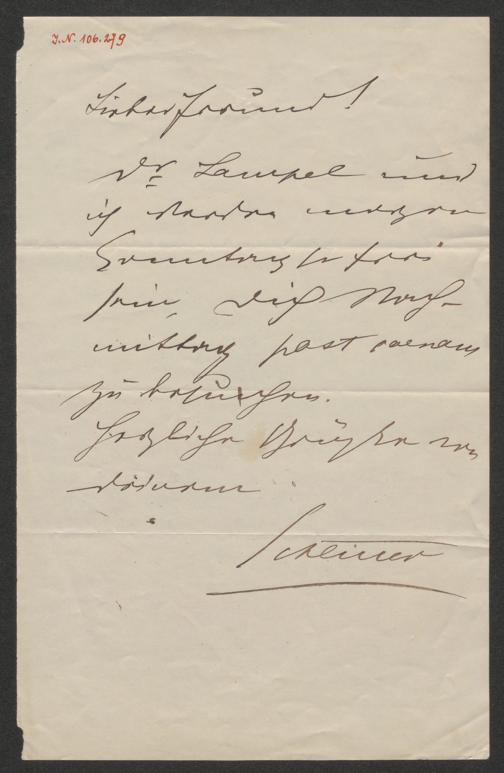 J.N. 106.279
Lieber Freund!
Dr Lampel und
ich werden morgen
Sonntag so frei
sein, Dich Nach-
mittag post coenam
zu besuchen.
Herzliche Grüße von
deinem